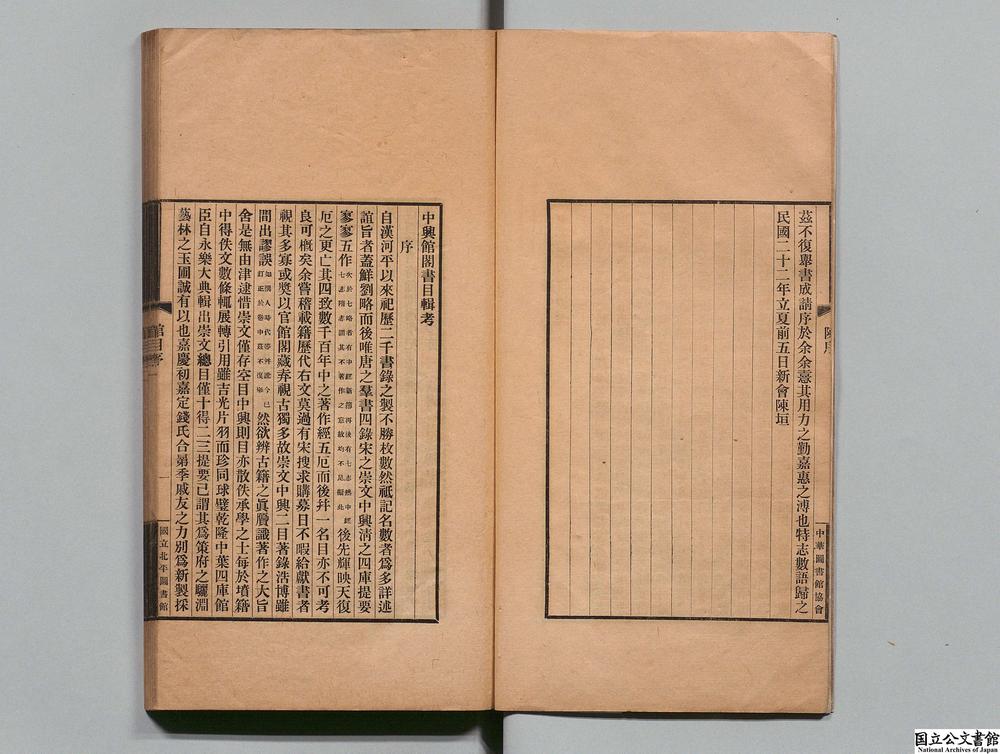 茲不復舉書成請序於余余憙其用力之勤嘉惠之溥也特志數語歸之
民國二十二年立夏前五日新會陳垣
陳序
中華圖書館協會
中興館閣書目輯考
序
自漢河平以來祀歷二千書錄之製不勝枚數然祗記名數者爲多詳述
誼旨者蓋鮮劉略而後唯唐之羣書四錄宋之崇文中興淸之四庫提要
寥寥五作
後先輝映天復
厄之更亡其四致數千百年中之著作經五厄而後幷一名目亦不可考
良可槪矣余嘗稽載籍歷代右文莫過有宋搜求購募日不暇給獻書者
視其多寡或奬以官館閣藏弆視古獨多故崇文中興二目著錄浩博雖
間出謬誤
然欲辨古籍之眞贋識著作之大旨
舍是無由津逮惜崇文僅存空目中興則目亦散佚承學之士每於墳籍
中得佚文數條輒展轉引用雖吉光片羽而珍同球璧乾隆中葉四庫館
臣自永樂大典輯出崇文總目僅十得二三提要已謂其爲策府之驪淵
藝林之玉圃誠有以也嘉慶初嘉定錢氏合弟季戚友之力別爲新製採
館目序
一
國立北平圖書館
国立公文書館
National Archives of Japan